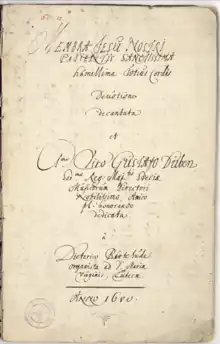 MEMBRA JESU NOSTRI
PATIENTIS SANCTISSIMA
humillima Totius Cordis
Devotione
decantata
et
Viro Gustavo Düben
Reg. Maj.
Musicorum Directori
Nobilissimo, Amico
pl. honorando
dedicata
à
Dieterico Buxtehude
organista ad S. Mariæ
Virginis, Lubeca
ANNO 1680.